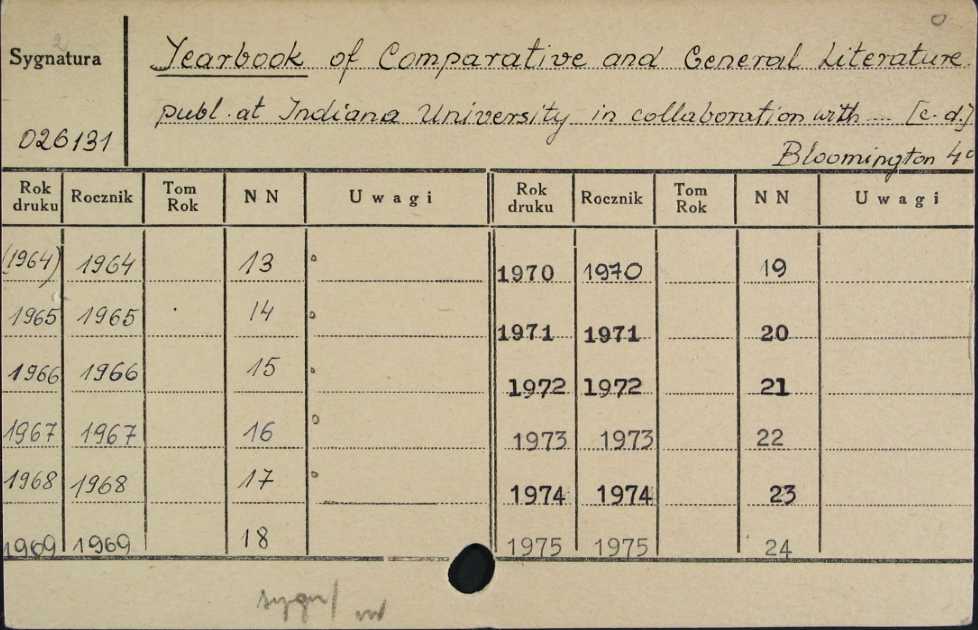 Sygnatura
026131
Yearbook of Comparative and General Literature.
publ. at Indiana University in collaboration with ... [c. d.]
Bloomington 4°
Rok druku Rocznik Tom Rok NN Uwagi Rok druku Rocznik Tom Rok NN Uwagi
(1964) 1964 13 1970 1970 19
1965 1965 14 1971 1971 20
1966 1966 15 1972 1972 21
1967 1967 16 1973 1973 22
1968 1968 17 1974 1974 23
1969 1969 18 1975 1975 24